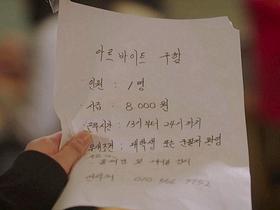 아르바이트 구함
인원 : 1명
시급 : 8,000원
근무시간 : 13시부터 24시 까지
우대조건 : 재학생 또는 군필자 환영
연락처 : 010